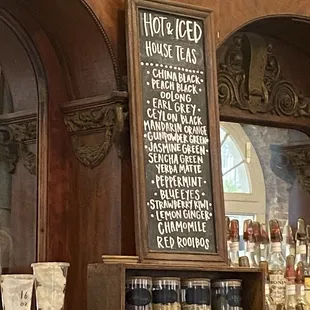 HOT & ICED
HOUSE TEAS
CHINA BLACK
PEACH BLACK
OOLONG
EARL GREY
CEYLON BLACK
MANDARIN ORANGE
GUNPOWDER GREEN
JASMINE GREEN
SENCHA GREEN
YERBA MATE
• PEPPERMINT •
• BLUE EYES •
• STRAWBERRY KIWI •
• LEMON GINGER •
CHAMOMILE
RED ROOIBOS
16
OZ